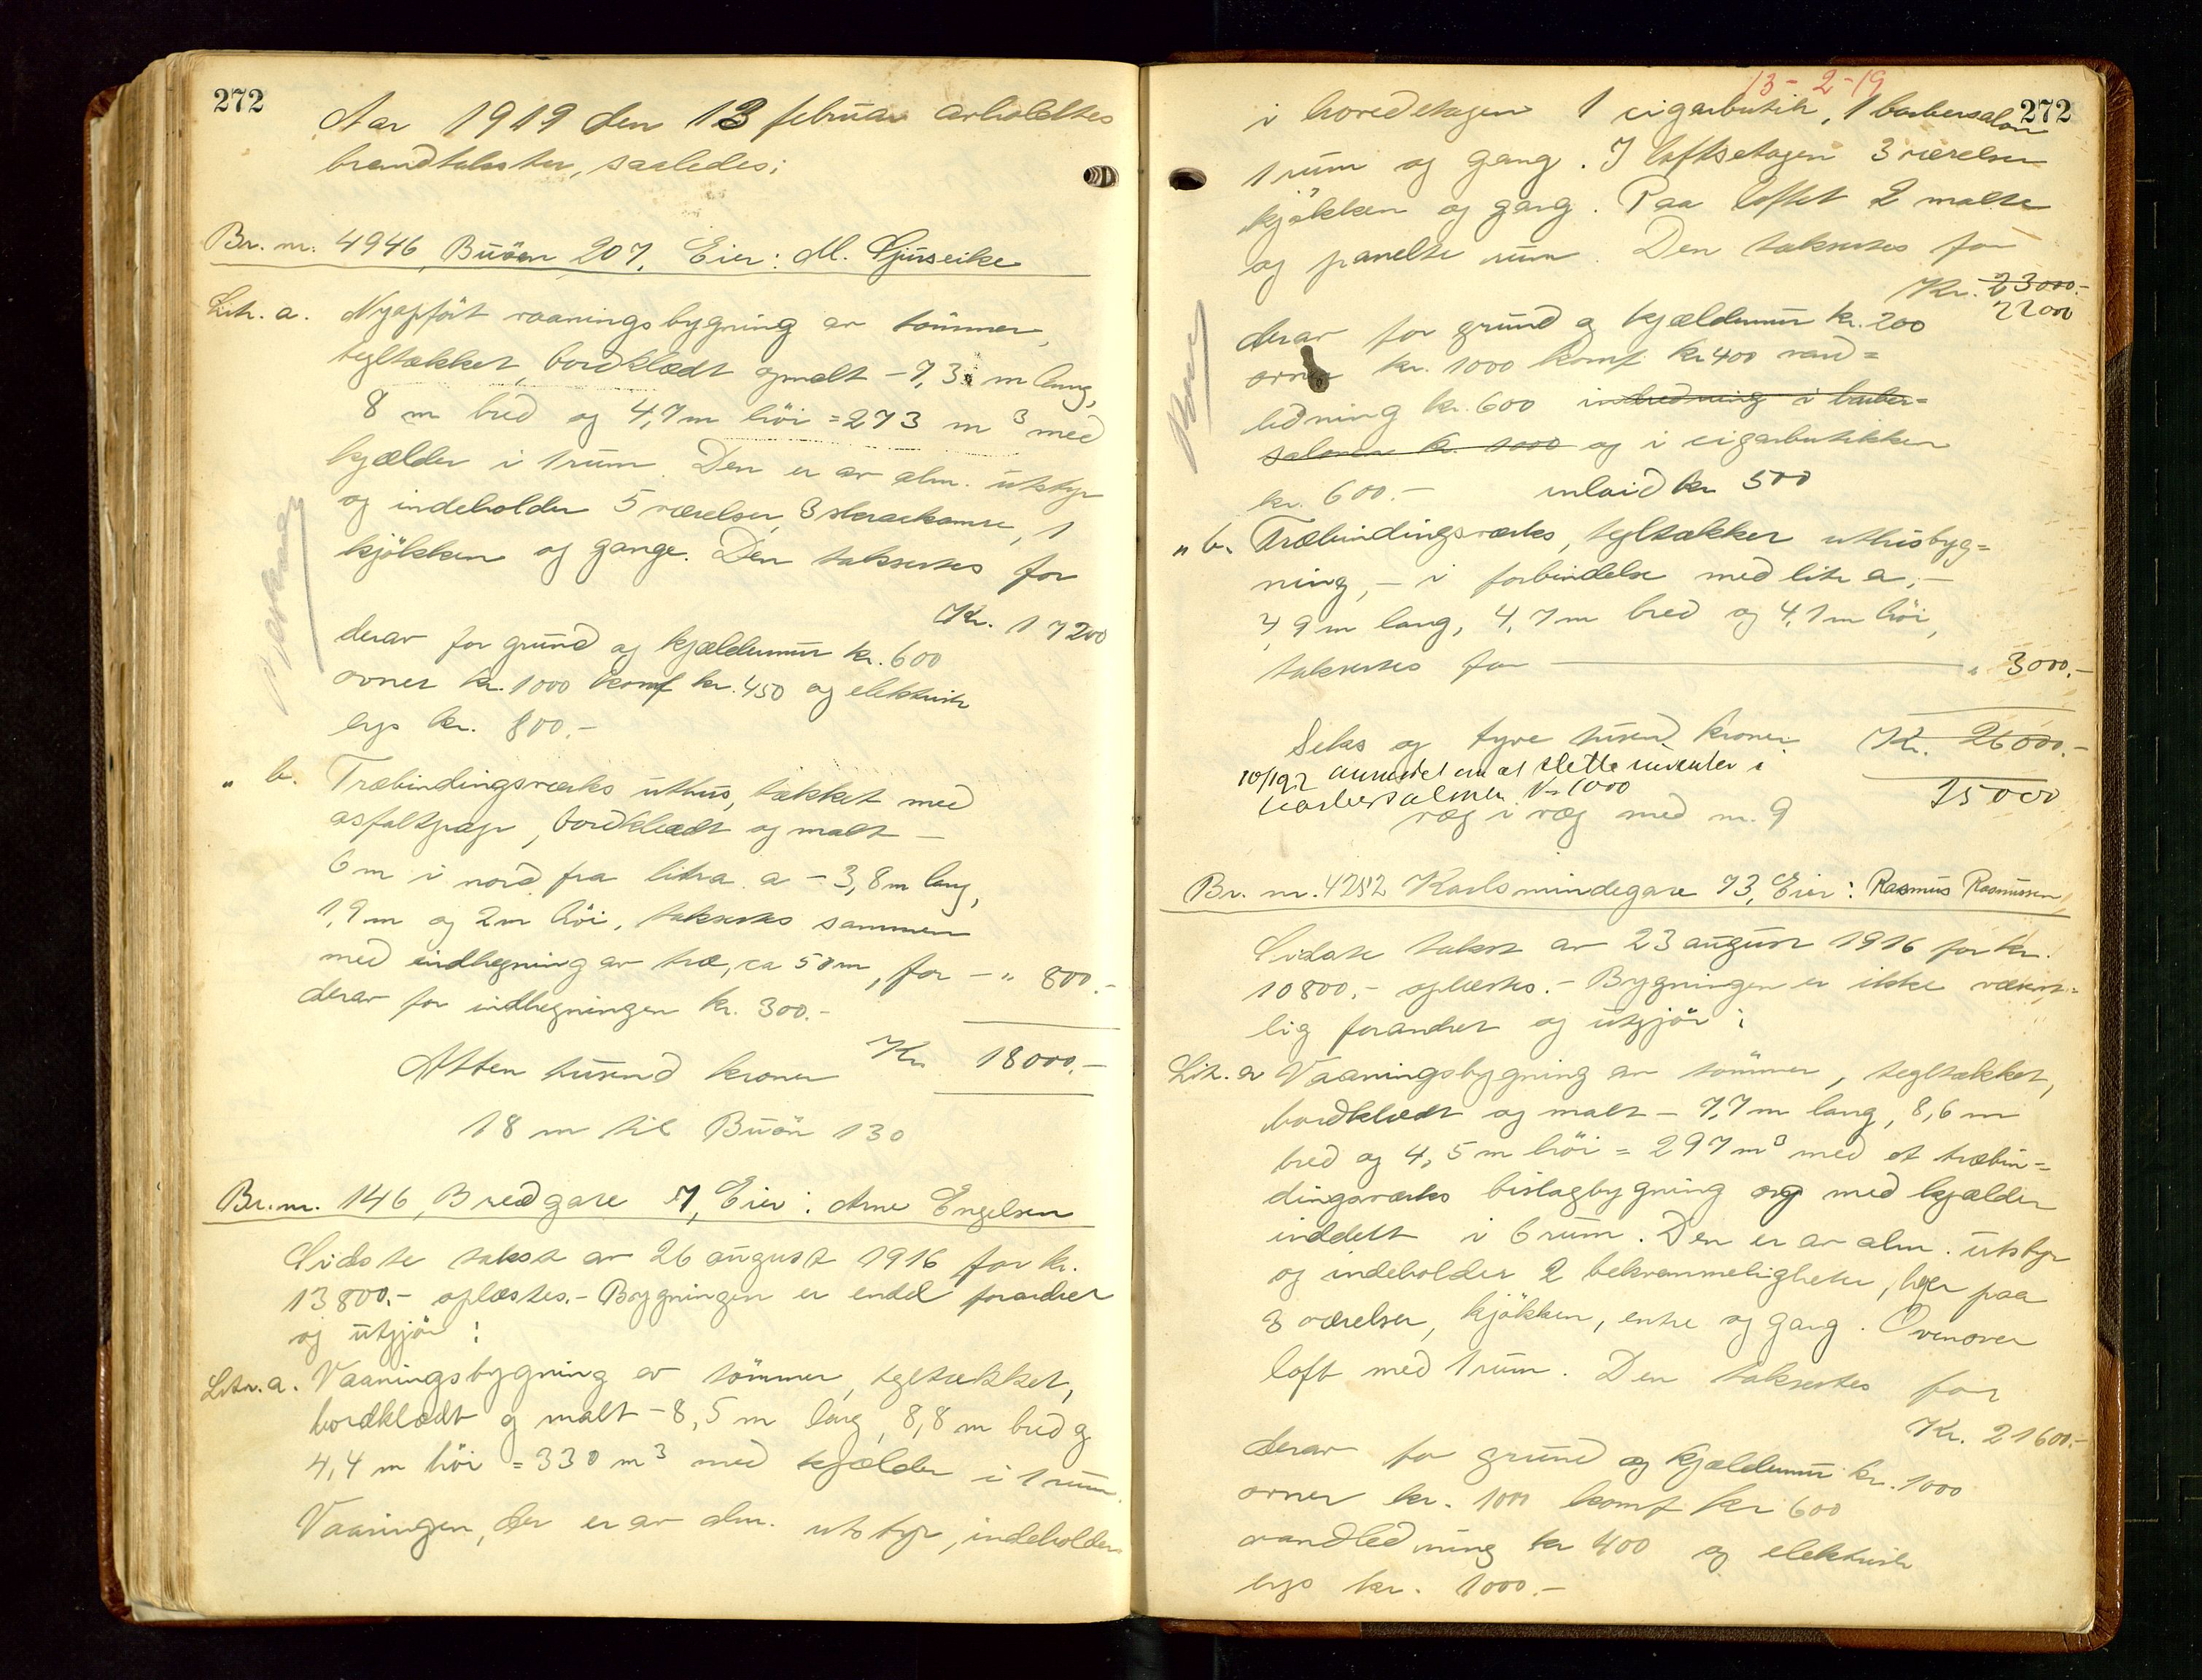 272
Aar 1919 den 13 februar avholdtes
brandtakster, saaledes:
Br. nr. 4946, Buöen 207, Eier: M. Gjuseike
Litr. a. Nyopfört vaaningsbygning av tömmer,
tegltækket, bordklædt og malt - 7,3 m lang,
8 m bred og 4,7 m höi = 273 m³ med
kjælder i 1 rum. Den er av alm. utstyr
og indeholder 5 værelser, 3 skraakamre, 1
kjökken og gange. Den takseres for
Kr. 17200
derav for grund og kjældermur kr. 600
ovner kr. 1000 komf kr. 450 og elektrisk
lys kr. 800.-
" b. Træbindingsverks uthus, tækket med
asfaltpap, bordklædt og malt -
6 m i nord fra litra a - 3,8 m lang,
1,9 m og 2 m höi, takseres sammen
med indhegning av træ, ca 50 m, for - " 800.-
derav for indhegningen kr. 300.-
Atten tusend kroner Kr 18000.-
18 m til Buön 130
Br. nr. 146, Bredgate 7, Eier: Arne Engelsen
Sidste takst av 26 august 1916 for kr.
13800.- oplæstes.- Bygningen er endel forandret
og utgjör:
Litr. a. Vaaningsbygning av tömmer, tegltækket,
bordklædt og malt - 8,5 m lang, 8,8 m bred og
4,4 m höi = 330 m³ med kjælder i 1 rum.
Vaaningen, der er av alm. utstyr, indeholder
13-2-19
272
i hovedetagen 1 cigarbutik, 1 barbersalon
1 rum og gang. I loftsetagen 3 værelser
kjökken og gang. Paa loftet 2 malte
og panelte rum. Den takseres for
Kr. 23000.-
22000
derav for grund og kjældermur kr. 200
ovner kr. 1000 komf kr 400 vand=
ledning kr. 600 indredning i barber=
salonen kr. 1000 og i cigarbutikken
kr. 600.- inlaid kr 500
" b. Træbindingsverks, tegltækket uthusbyg=
ning, - i forbindelse med litr a, -
4,9 m lang, 4,7 m bred og 4,1 m höi,
takseres for " 3000.-
Seks og tyve tusend kroner Kr. 26000.-
10/192 anmodet om at slette inventar i
barbersalonen kr 1000 25000
væg i væg med nr. 9
Br. nr. 4252 Karlsmindegate 73, Eier: Rasmus Rasmussen
Sidste takst av 23 august 1916 for kr.
10800,- oplæstes.- Bygningen er ikke væsent=
lig forandret og utgjör:
Litr. a Vaaningsbygning av tömmer, tegltækket,
bordklædt og malt - 7,7 m lang, 8,6 m
bred og 4,5 m höi = 297 m³ med et træbin=
dingsverks bislagbygning og med kjælder
inddelt i 6 rum. Den er av alm. utstyr
og indeholder 2 bekvemmeligheter, hver paa
3 værelser, kjökken, entre og gang. Ovenover
loft med 1 rum. Den takseres for
Kr. 21600.-
derav for grund og kjældermur kr. 1000
ovner kr. 1000 komf kr 600
vandledning kr 400 og elektrisk
lys kr. 1000.-